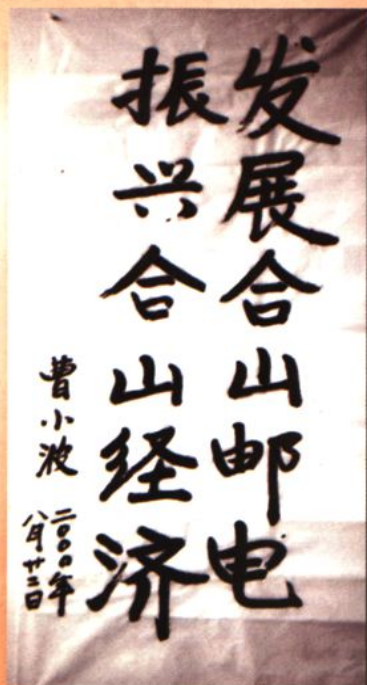 发展合山邮电
振兴合山经济
曹小波
二〇〇〇年
八月廿二日